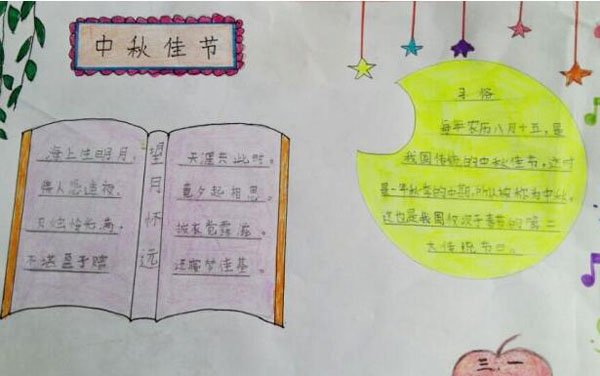 中秋佳节
海上佳明月,
情人怨遥夜,
灭烛怜光满,
不堪盈手赠
望月怀远
天涯共此时。
竟夕起相思。
披衣觉露滋。
还寝梦佳期。
每年农历八月十五,是
我国传统的中秋佳节,这时
是一年秋季的中期,所以被称为中秋。
这也是我国仅次于春节的第二
大传统节日。
三.一